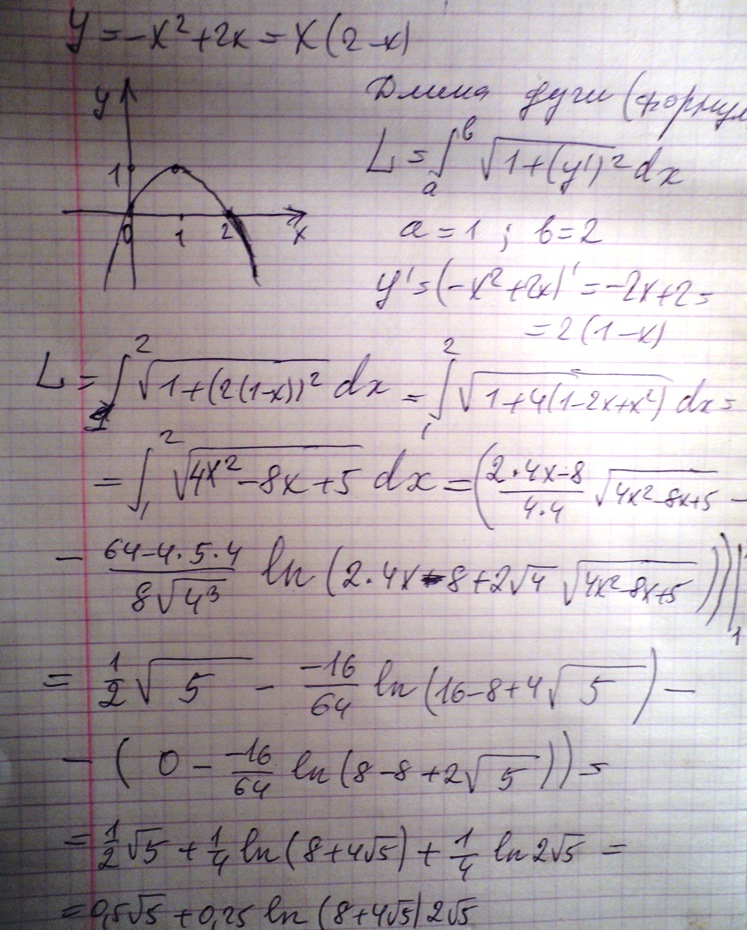 y = -x² + 2x = x(2-x)
y
1
0 1 2 x
Длина дуги (формул
L = ∫ₐᵇ √(1+(y')²) dx
a = 1 ; b = 2
y' = (-x²+2x)' = -2x+2 =
= 2(1-x)
L = ∫₁² √(1+(2(1-x))²) dx = ∫₁² √(1+4(1-2x+x²)) dx =
= ∫₁² √(4x²-8x+5) dx = ( (2·4x-8)/(4·4) √(4x²-8x+5) -
- (64-4·5·4)/(8√4³) ln(2·4x-8+2√4 √(4x²-8x+5)))|₁
= 1/2 √5 - (-16)/64 ln(16-8+4√5) -
- (0 - (-16)/64 ln(8-8+2√5)) =
= 1/2 √5 + 1/4 ln(8+4√5) + 1/4 ln 2√5 =
= 0,5√5 + 0,25 ln (8+4√5) 2√5